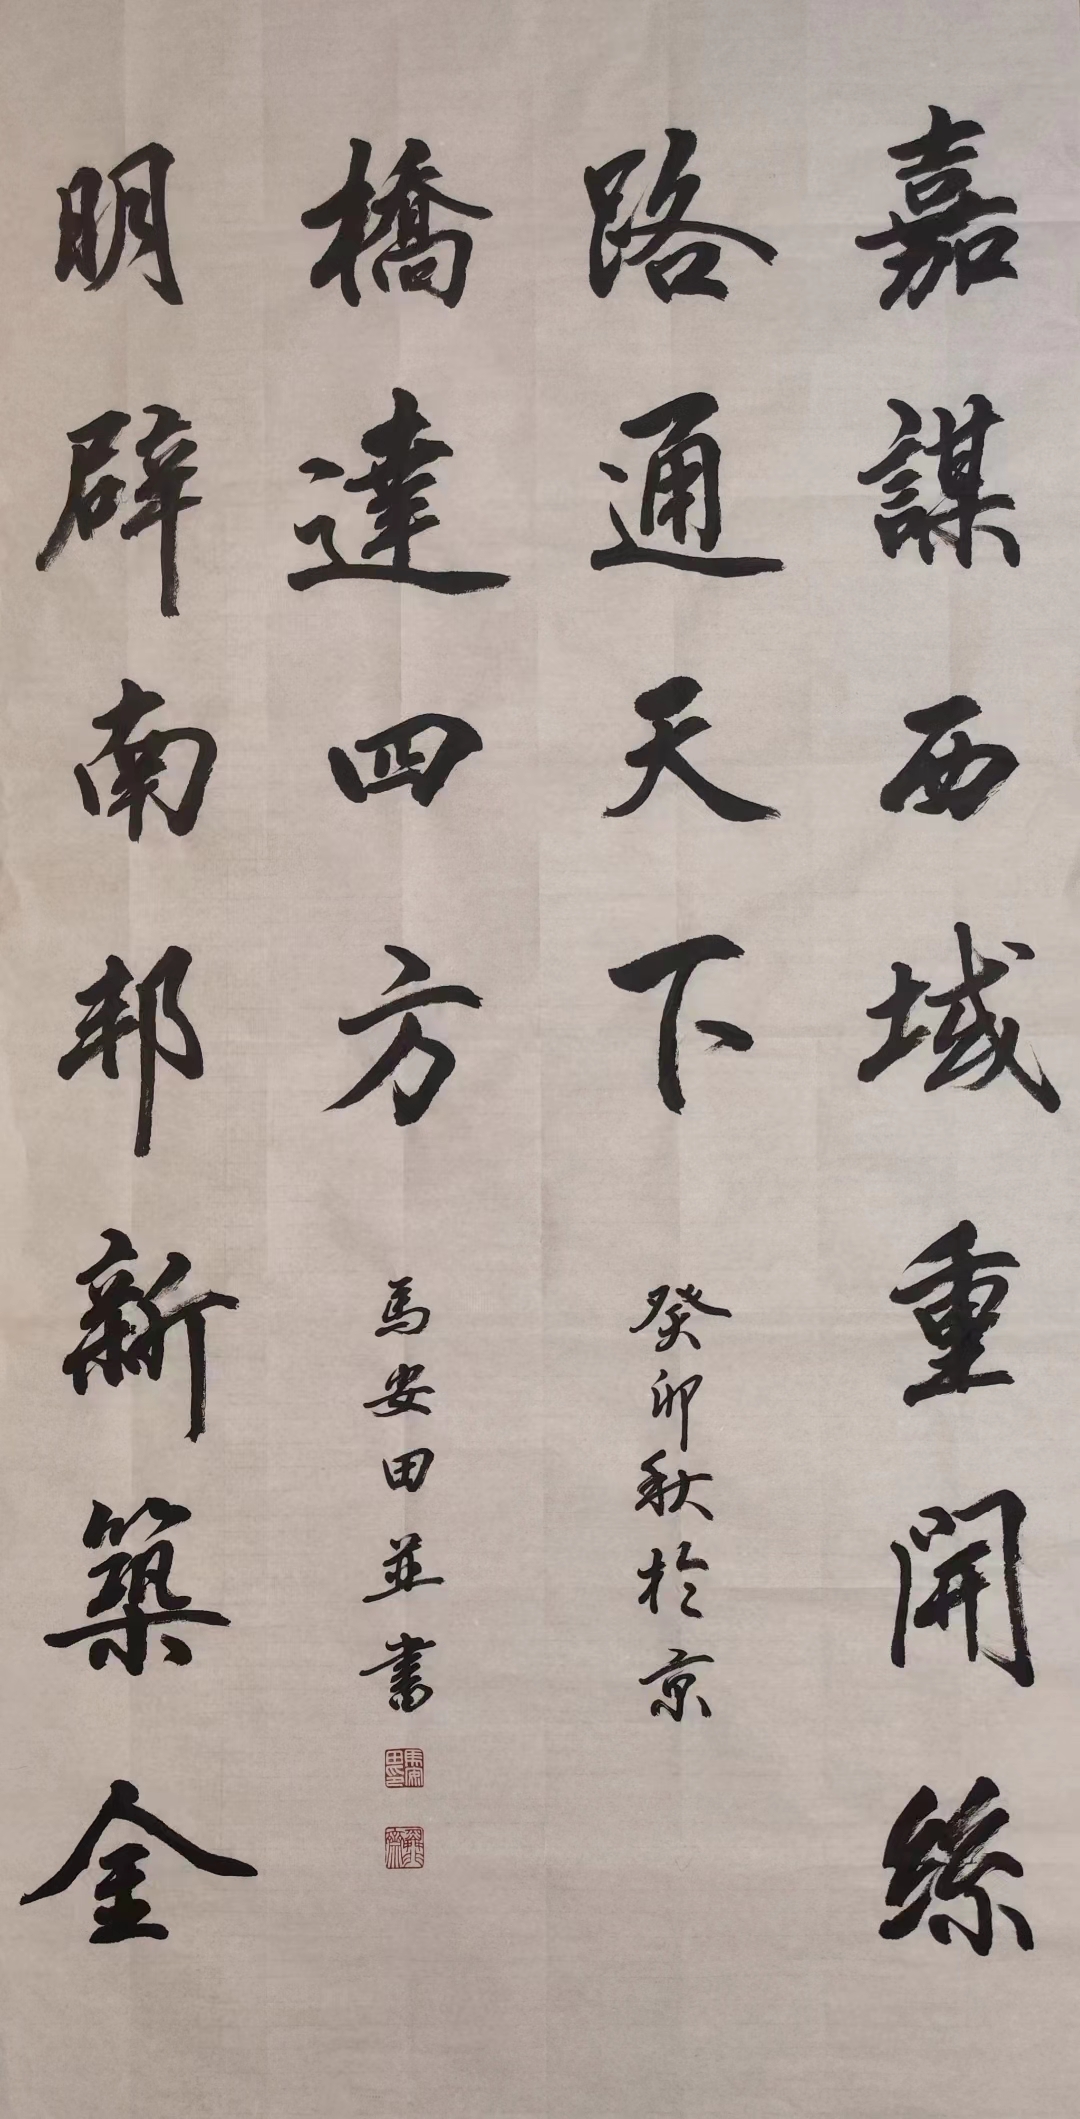 嘉謀西域重開絲
路通天下
癸卯秋於京
明辟南邦新築金
橋達四方
馬安田並書
馬安田印